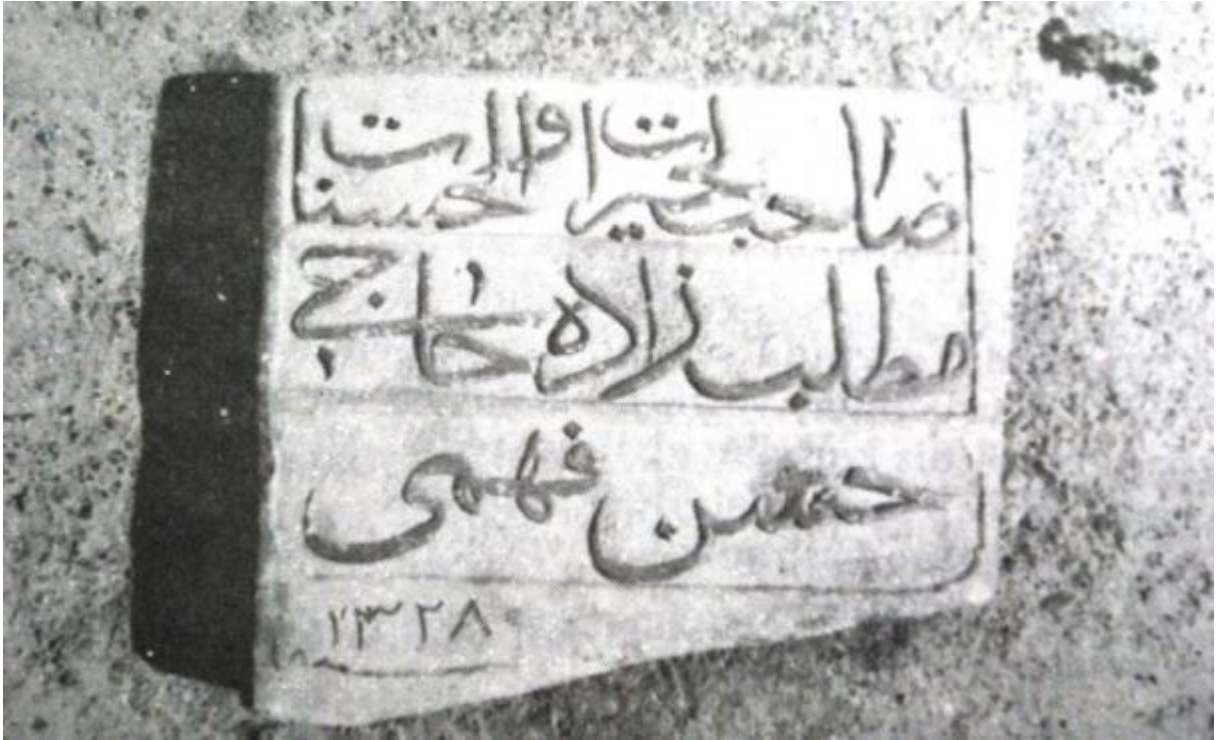 صاحب الخيرات والحسنات
مطلب زاده حاجی
حسن فهمی
١٣٢٨